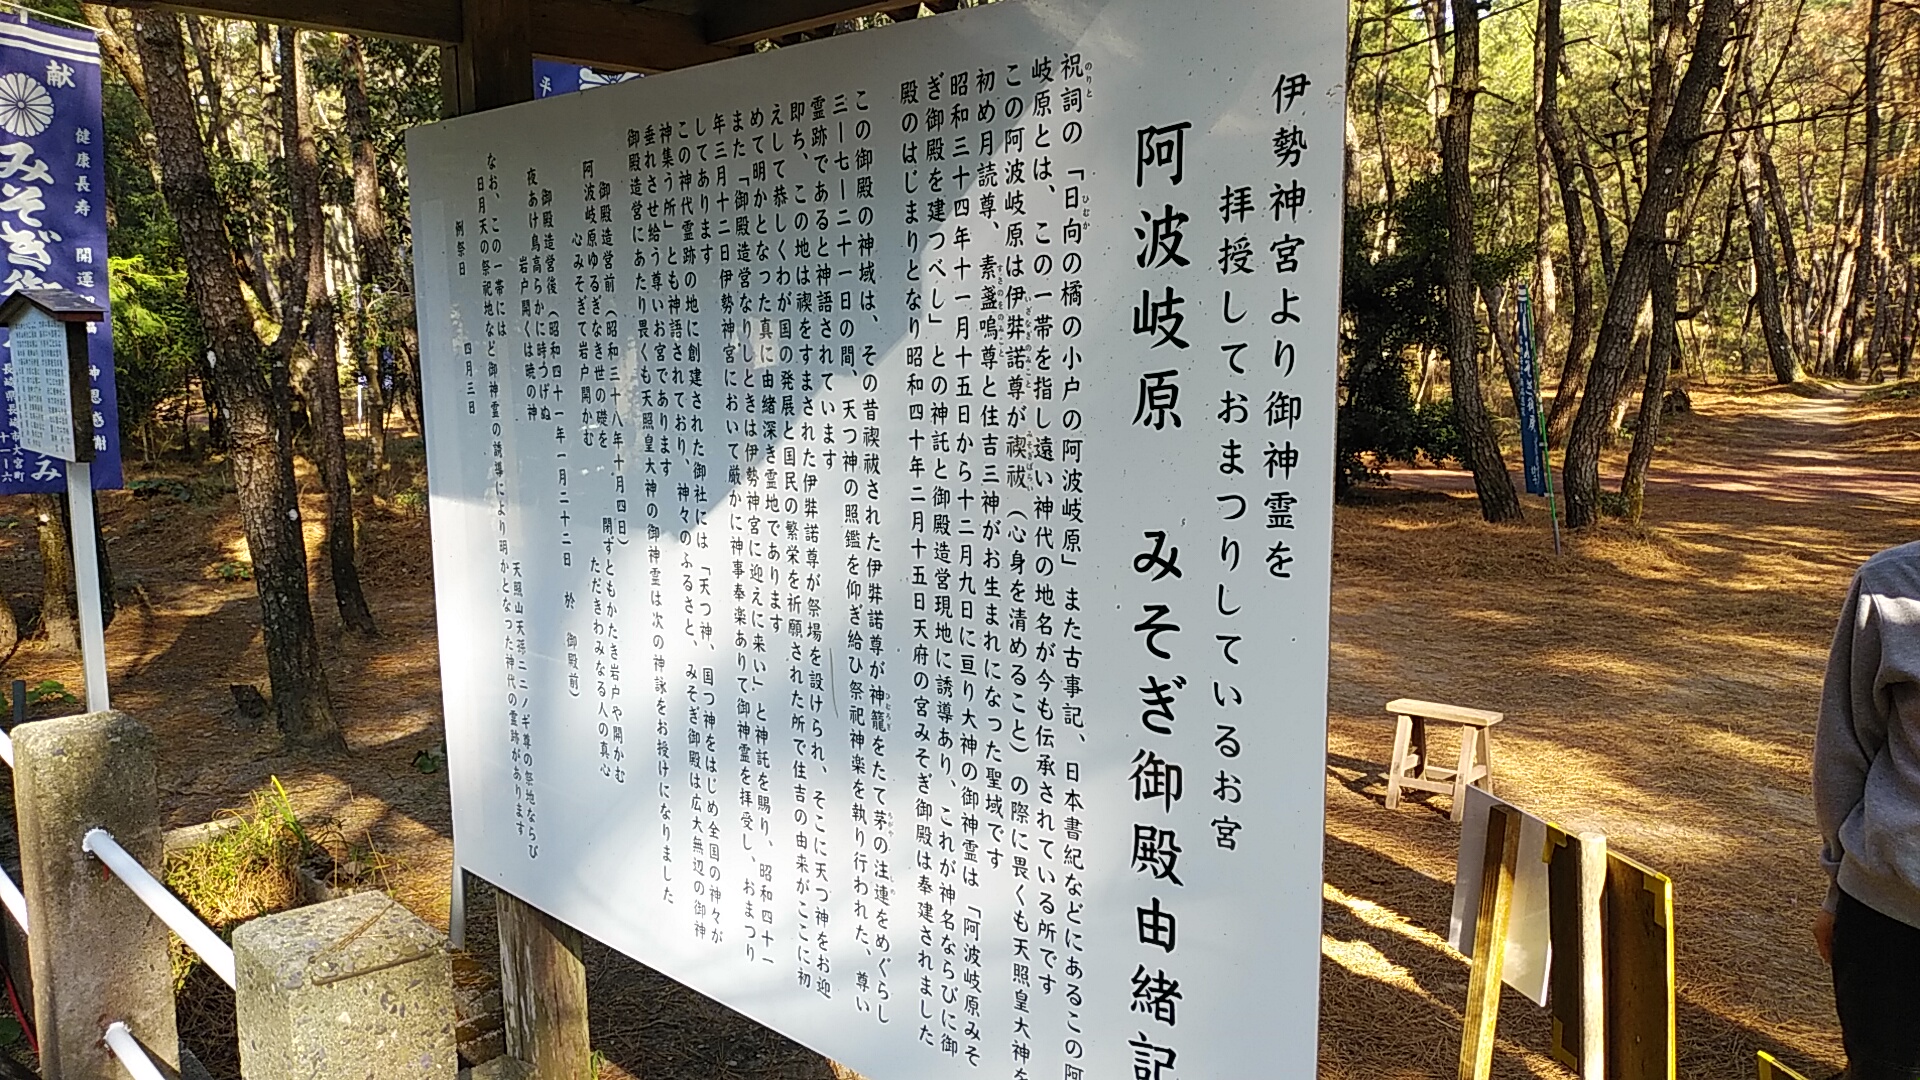 伊勢神宮より御神霊を
拝授しておまつりしているお宮
阿波岐原 みそぎ御殿由緒記
祝詞の「日向の橘の小戸の阿波岐原」また古事記、日本書紀などにあるこの阿
岐原とは、この一帯を指し遠い神代の地名が今も伝承されている所です
この阿波岐原は伊弉諾尊が禊祓(心身を清めること)の際に畏くも天照皇大神を
初め月読尊、素盞嗚尊と住吉三神がお生まれになった聖域です
昭和三十四年十一月十五日から十二月九日に亘り大神の御神霊は「阿波岐原みそ
ぎ御殿を建つべし」との神託と御殿造営現地に誘導あり、これが神名ならびに御
殿のはじまりとなり昭和四十年二月十五日天府の宮みそぎ御殿は奉建されました
この御殿の神域は、その昔禊祓された伊弉諾尊が神籠をたて茅の注連をめぐらし
三ー七ー二十一日の間、天つ神の照鑑を仰ぎ給ひ祭祀神楽を執り行われた、尊い
霊跡であると神語されています
即ち、この地は禊をすまされた伊弉諾尊が祭場を設けられ、そこに天つ神をお迎
えして恭しくわが国の発展と国民の繁栄を祈願された所で住吉の由来がここに初
めて明かとなった真に由緒深き霊地であります
また「御殿造営なりしときは伊勢神宮に迎えに来い」と神託を賜り、昭和四十一
年三月十二日伊勢神宮において厳かに神事奉楽ありて御神霊を拝受し、おまつり
してあります
この神代霊跡の地に創建された御社には「天つ神、国つ神をはじめ全国の神々が
神集う所」とも神語されており、神々のふるさと、みそぎ御殿は広大無辺の御神
垂れさせ給う尊いお宮であります
御殿造営にあたり畏くも天照皇大神の御神霊は次の神詠をお授けになりました
御殿造営前(昭和三十八年十月四日)
阿波岐原ゆるぎなき世の礎を 閉ずともかたき岩戸や開かむ
心みそぎて岩戸開かむ ただきわみなる人の真心
御殿造営後(昭和四十一年一月二十二日 於 御殿前)
夜あけ鳥高らかに時うげぬ
岩戸開くは暁の神
なお、この一帯には 天照山天孫ニニノギ尊の祭地ならび
日月天の祭祀地など御神霊の誘導により明かとなった神代の霊跡があります
例祭日 四月三日
献
みそぎ御
健康長寿 開運
神恩感謝
長崎県長崎市大宮町
十一ー六